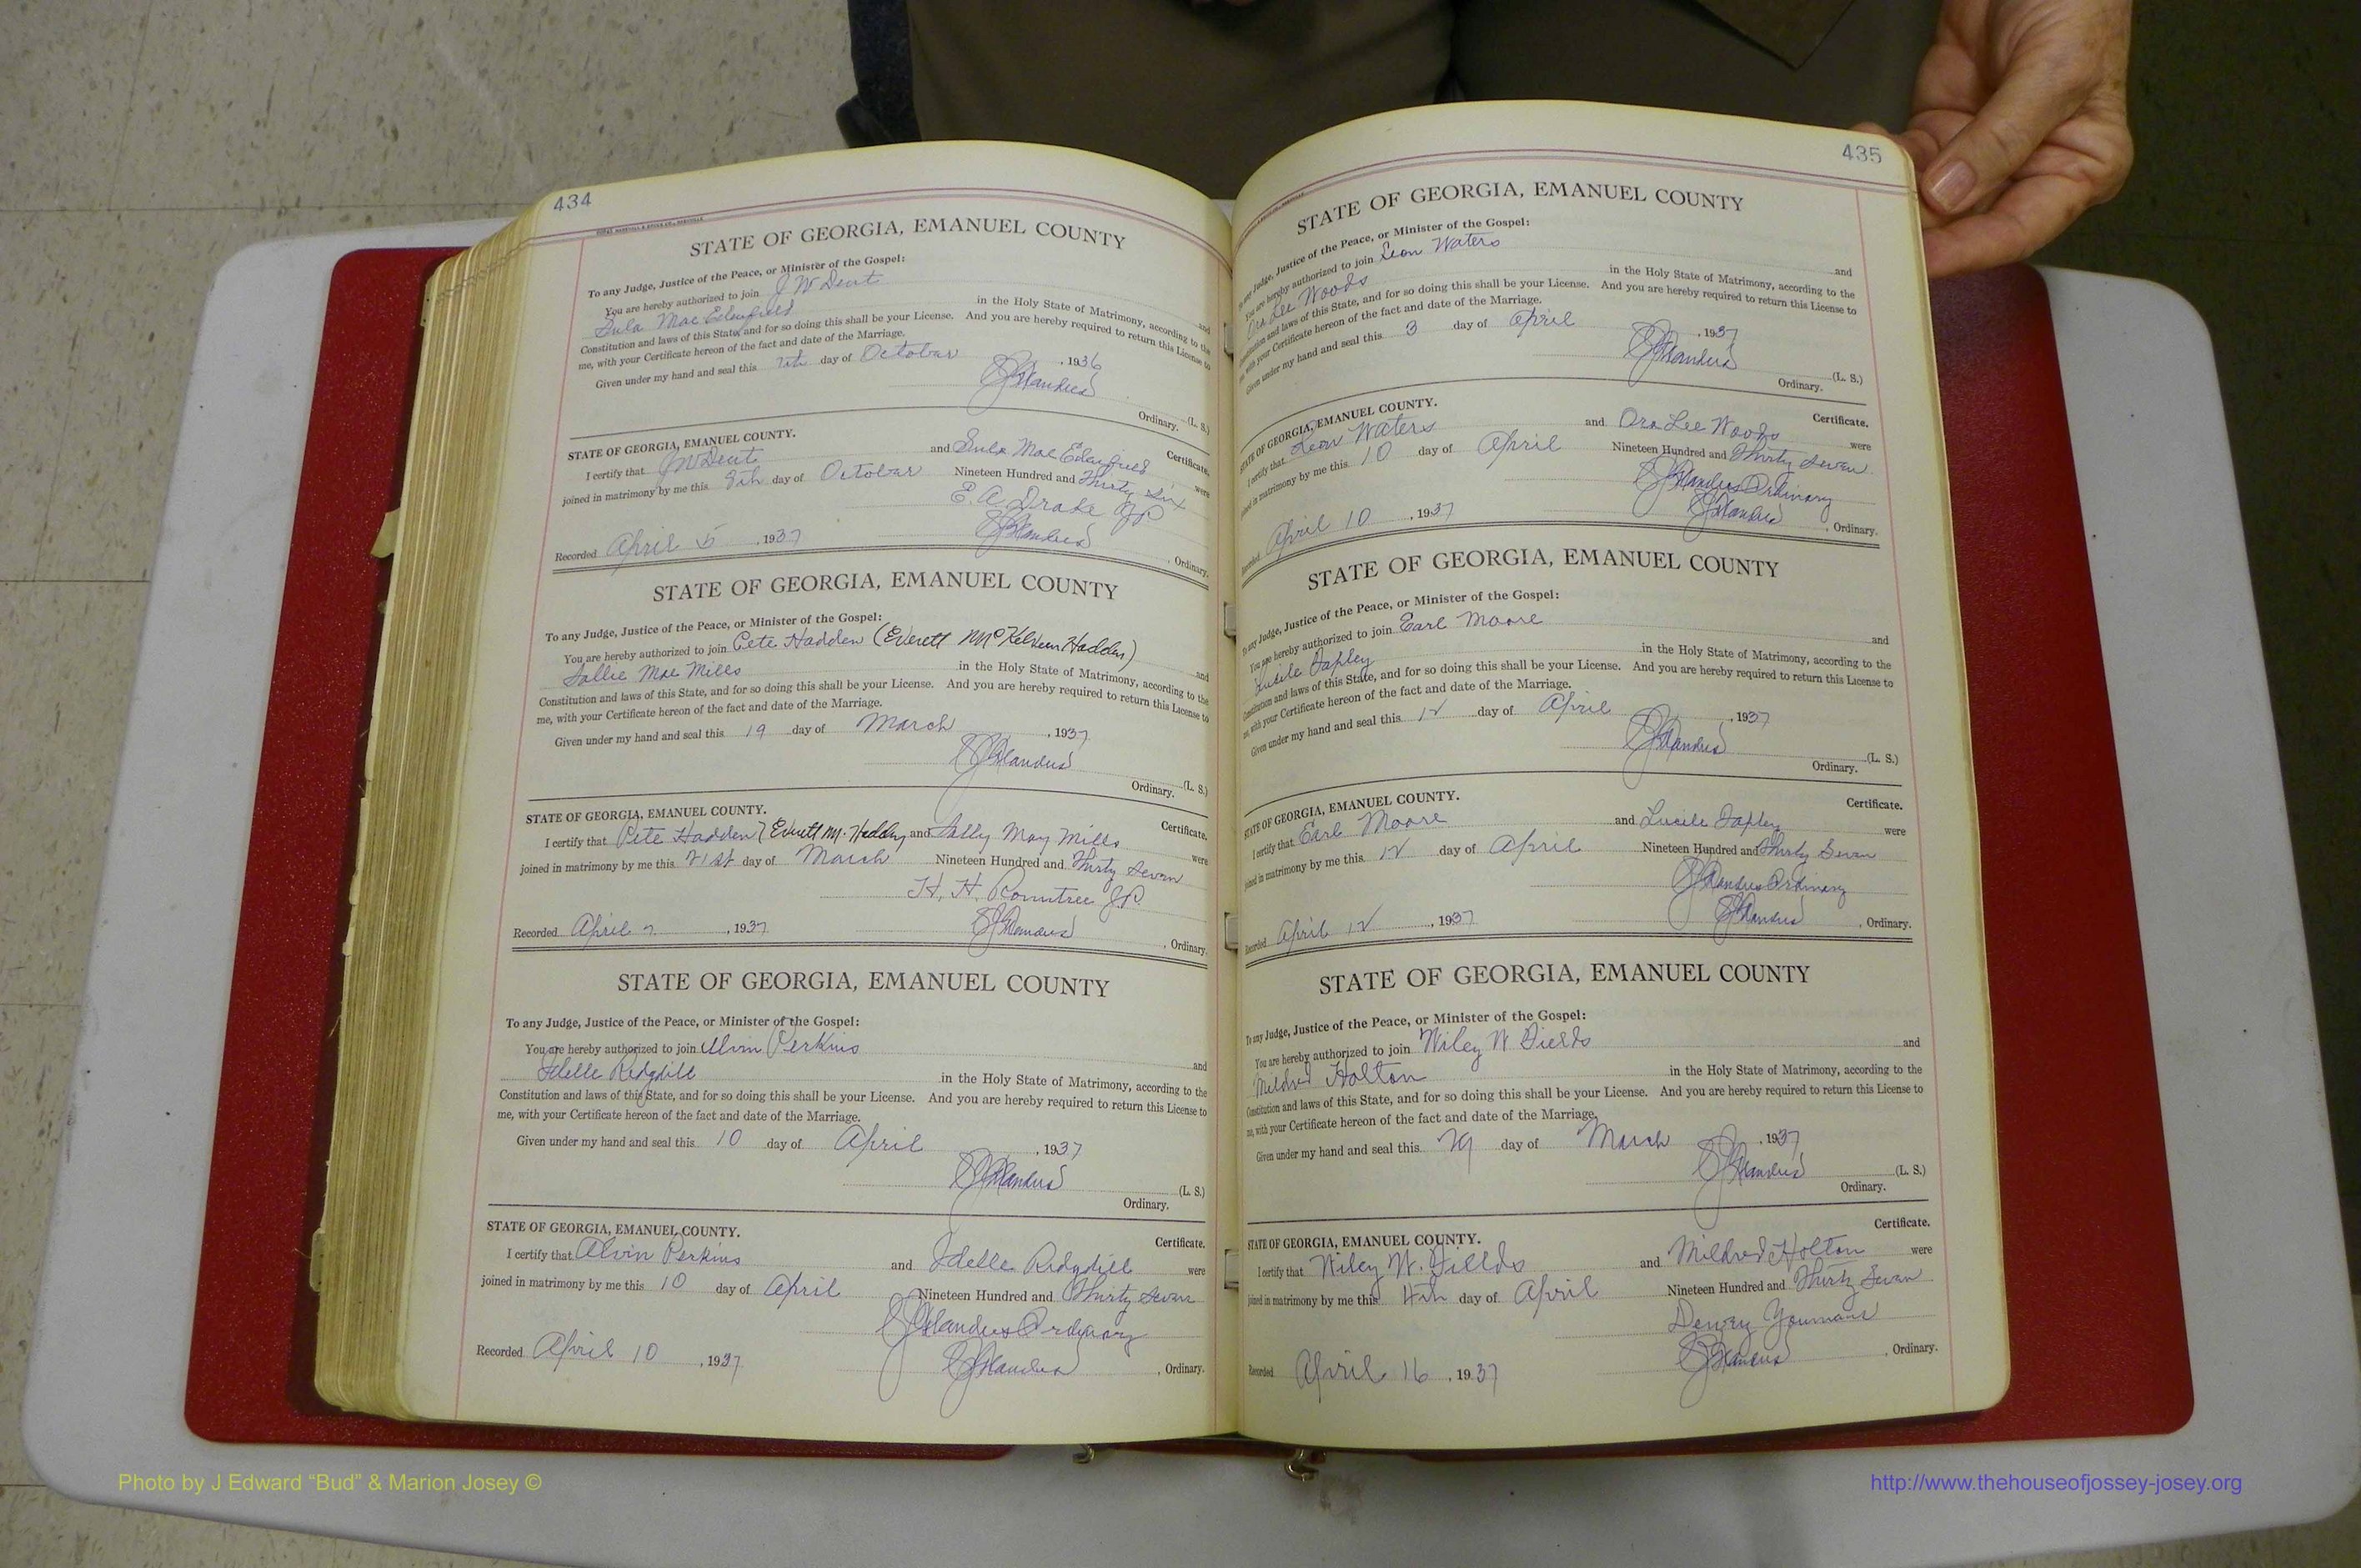 434
STATE OF GEORGIA, EMANUEL COUNTY
To any Judge, Justice of the Peace, or Minister of the Gospel:
You are hereby authorized to join J W Dent and
Eula Mae Edenfield in the Holy State of Matrimony, according to the
Constitution and laws of this State, and for so doing this shall be your License. And you are hereby required to return this License to
me, with your Certificate hereon of the fact and date of the Marriage.
Given under my hand and seal this 7th day of October, 1936
(L. S.)
Ordinary.
STATE OF GEORGIA, EMANUEL COUNTY. Certificate.
I certify that J W Dent and Eula Mae Edenfield were
joined in matrimony by me this 8th day of October Nineteen Hundred and Thirty Six
E. A. Drake J P
Recorded April 5, 1937, Ordinary.
STATE OF GEORGIA, EMANUEL COUNTY
To any Judge, Justice of the Peace, or Minister of the Gospel:
You are hereby authorized to join Pete Hadden (Everett McKelvin Hadden) and
Sallie Mae Mills in the Holy State of Matrimony, according to the
Constitution and laws of this State, and for so doing this shall be your License. And you are hereby required to return this License to
me, with your Certificate hereon of the fact and date of the Marriage.
Given under my hand and seal this 19 day of March, 1937
(L. S.)
Ordinary.
STATE OF GEORGIA, EMANUEL COUNTY. Certificate.
I certify that Pete Hadden (Everett M. Hadden) and Sally May Mills were
joined in matrimony by me this 21st day of March Nineteen Hundred and Thirty Seven
H. H. Rountree J.P.
Recorded April 7, 1937, Ordinary.
STATE OF GEORGIA, EMANUEL COUNTY
To any Judge, Justice of the Peace, or Minister of the Gospel:
You are hereby authorized to join Alvin Perkins and
Idelle Ridgdill in the Holy State of Matrimony, according to the
Constitution and laws of this State, and for so doing this shall be your License. And you are hereby required to return this License to
me, with your Certificate hereon of the fact and date of the Marriage.
Given under my hand and seal this 10 day of April, 1937
(L. S.)
Ordinary.
STATE OF GEORGIA, EMANUEL COUNTY. Certificate.
I certify that Alvin Perkins and Idelle Ridgdill were
joined in matrimony by me this 10 day of April Nineteen Hundred and Thirty Seven
Ordinary
Recorded April 10, 1937, Ordinary.
435
STATE OF GEORGIA, EMANUEL COUNTY
To any Judge, Justice of the Peace, or Minister of the Gospel:
You are hereby authorized to join Leon Waters and
Ora Lee Woods in the Holy State of Matrimony, according to the
Constitution and laws of this State, and for so doing this shall be your License. And you are hereby required to return this License to
me, with your Certificate hereon of the fact and date of the Marriage.
Given under my hand and seal this 3 day of April, 1937
(L. S.)
Ordinary.
STATE OF GEORGIA, EMANUEL COUNTY. Certificate.
I certify that Leon Waters and Ora Lee Woods were
joined in matrimony by me this 10 day of April Nineteen Hundred and Thirty Seven
Ordinary
Recorded April 10, 1937, Ordinary.
STATE OF GEORGIA, EMANUEL COUNTY
To any Judge, Justice of the Peace, or Minister of the Gospel:
You are hereby authorized to join Earl Moore and
Lucile Tapley in the Holy State of Matrimony, according to the
Constitution and laws of this State, and for so doing this shall be your License. And you are hereby required to return this License to
me, with your Certificate hereon of the fact and date of the Marriage.
Given under my hand and seal this 12 day of April, 1937
(L. S.)
Ordinary.
STATE OF GEORGIA, EMANUEL COUNTY. Certificate.
I certify that Earl Moore and Lucile Tapley were
joined in matrimony by me this 12 day of April Nineteen Hundred and Thirty Seven
Ordinary
Recorded April 12, 1937, Ordinary.
STATE OF GEORGIA, EMANUEL COUNTY
To any Judge, Justice of the Peace, or Minister of the Gospel:
You are hereby authorized to join Wiley W Fields and
Mildred Holton in the Holy State of Matrimony, according to the
Constitution and laws of this State, and for so doing this shall be your License. And you are hereby required to return this License to
me, with your Certificate hereon of the fact and date of the Marriage.
Given under my hand and seal this 29 day of March, 1937
(L. S.)
Ordinary.
STATE OF GEORGIA, EMANUEL COUNTY. Certificate.
I certify that Wiley W. Fields and Mildred Holton were
joined in matrimony by me this 4th day of April Nineteen Hundred and Thirty Seven
Dewey Youmans
Recorded April 16, 1937, Ordinary.
Photo by J Edward “Bud” & Marion Josey ©
http://www.thehouseofjossey-josey.org